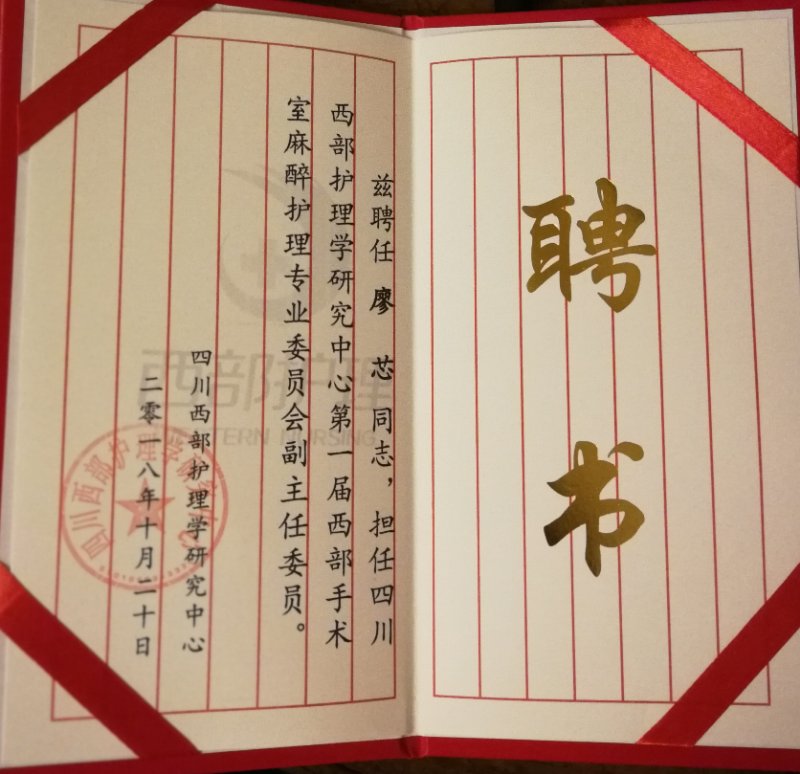 聘书
兹聘任 廖 芯 同志，担任四川
西部护理学研究中心第一届西部手术
室麻醉护理专业委员会副主任委员。
四川西部护理学研究中心
二零一八年十月二十日
西部护理
WESTERN NURSING
四川西部护理学研究中心